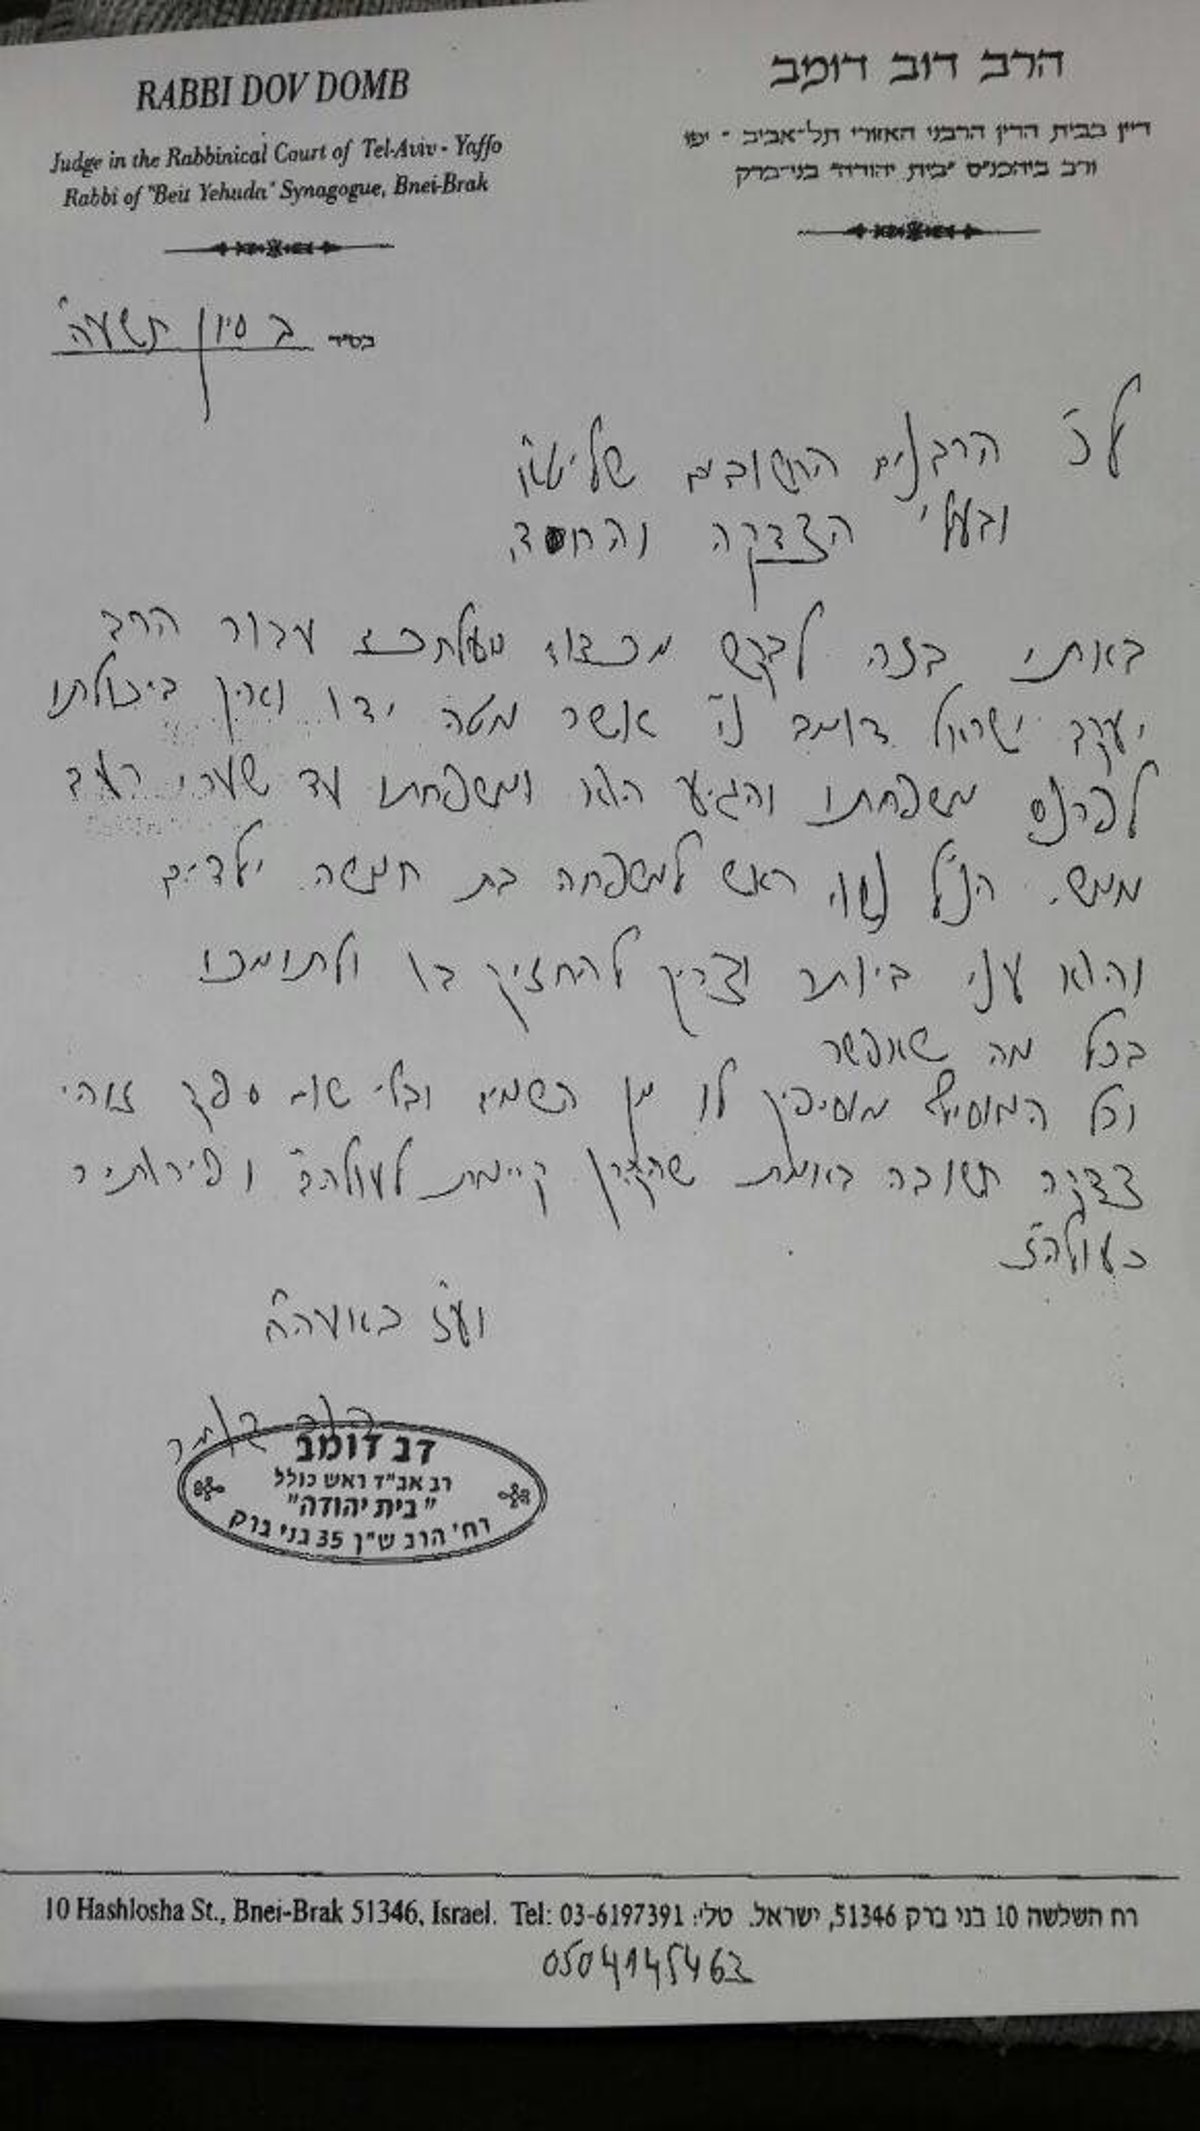 RABBI DOV DOMB
Judge in the Rabbinical Court of Tel-Aviv - Yaffo
Rabbi of "Beit Yehuda" Synagogue, Bnei-Brak
הרב דוב דומב
דיין בבית הדין הרבני האזורי תל-אביב - יפו
ורב ביהכנ"ס "בית יהודה" בני-ברק
בס"ד ב סיון תשע"ה
הרבנים החשובים שליט"א
ובעלי הצדקה והחסד,
באותי בזה לבקש מעלתכם עבור הרב
יעקב ישראל דומב נ"י אשר מטה ידו ואין ביכולתו
לפרנס משפחתו והגיע הוא ומשפחתו עד שערי רעב
ממש. הנ"ל נשוי ראש למשפחה בת חמשה ילדים
והוא עני ביותר וצריך להחזיק בו ולתומכו
בכל מה שאפשר
וכל המוסיף מוסיפין לו מן השמים ובלי שום ספק זוהי
צדקה חשובה באמת שהקרן קיימת לעולה"ב ופירותיה
בעולה"ז
וע"ז באעה"ח
דב דומב
רב אב"ד וראש כולל
"בית יהודה"
רח' הרב ש"ך 35 בני ברק
10 Hashlosha St., Bnei-Brak 51346, Israel. Tel: 03-6197391 רח השלשה 10 בני ברק 51346, ישראל. טלי:
0504145463